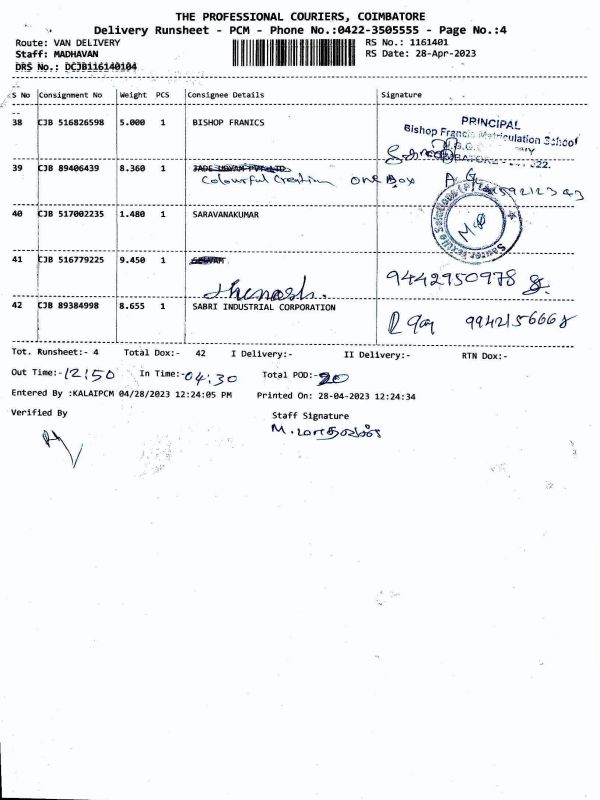 THE PROFESSIONAL COURIERS, COIMBATORE
Delivery Runsheet - PCM - Phone No.:0422-3505555 - Page No.:4
Route: VAN DELIVERY
RS No.: 1161401
Staff: MADHAVAN
RS Date: 28-Apr-2023
DRS No.: DCJB116140104
S No Consignment No Weight PCS Consignee Details Signature
38 CJB 516826598 5.000 1 BISHOP FRANICS
PRINCIPAL
Bishop Francis Matriculation School
39 CJB 89406439 8.360 1
Colourful Creation one Box
40 CJB 517002235 1.480 1 SARAVANAKUMAR
41 CJB 516779225 9.450 1 SELVAM
9442950978
42 CJB 89384998 8.655 1 SABRI INDUSTRIAL CORPORATION
9942156668
Tot. Runsheet:- 4 Total Dox:- 42 I Delivery:- II Delivery:- RTN Dox:-
Out Time:- 12:50 In Time:- 04:30 Total POD:- 20
Entered By :KALAIPCM 04/28/2023 12:24:05 PM Printed On: 28-04-2023 12:24:34
Verified By Staff Signature